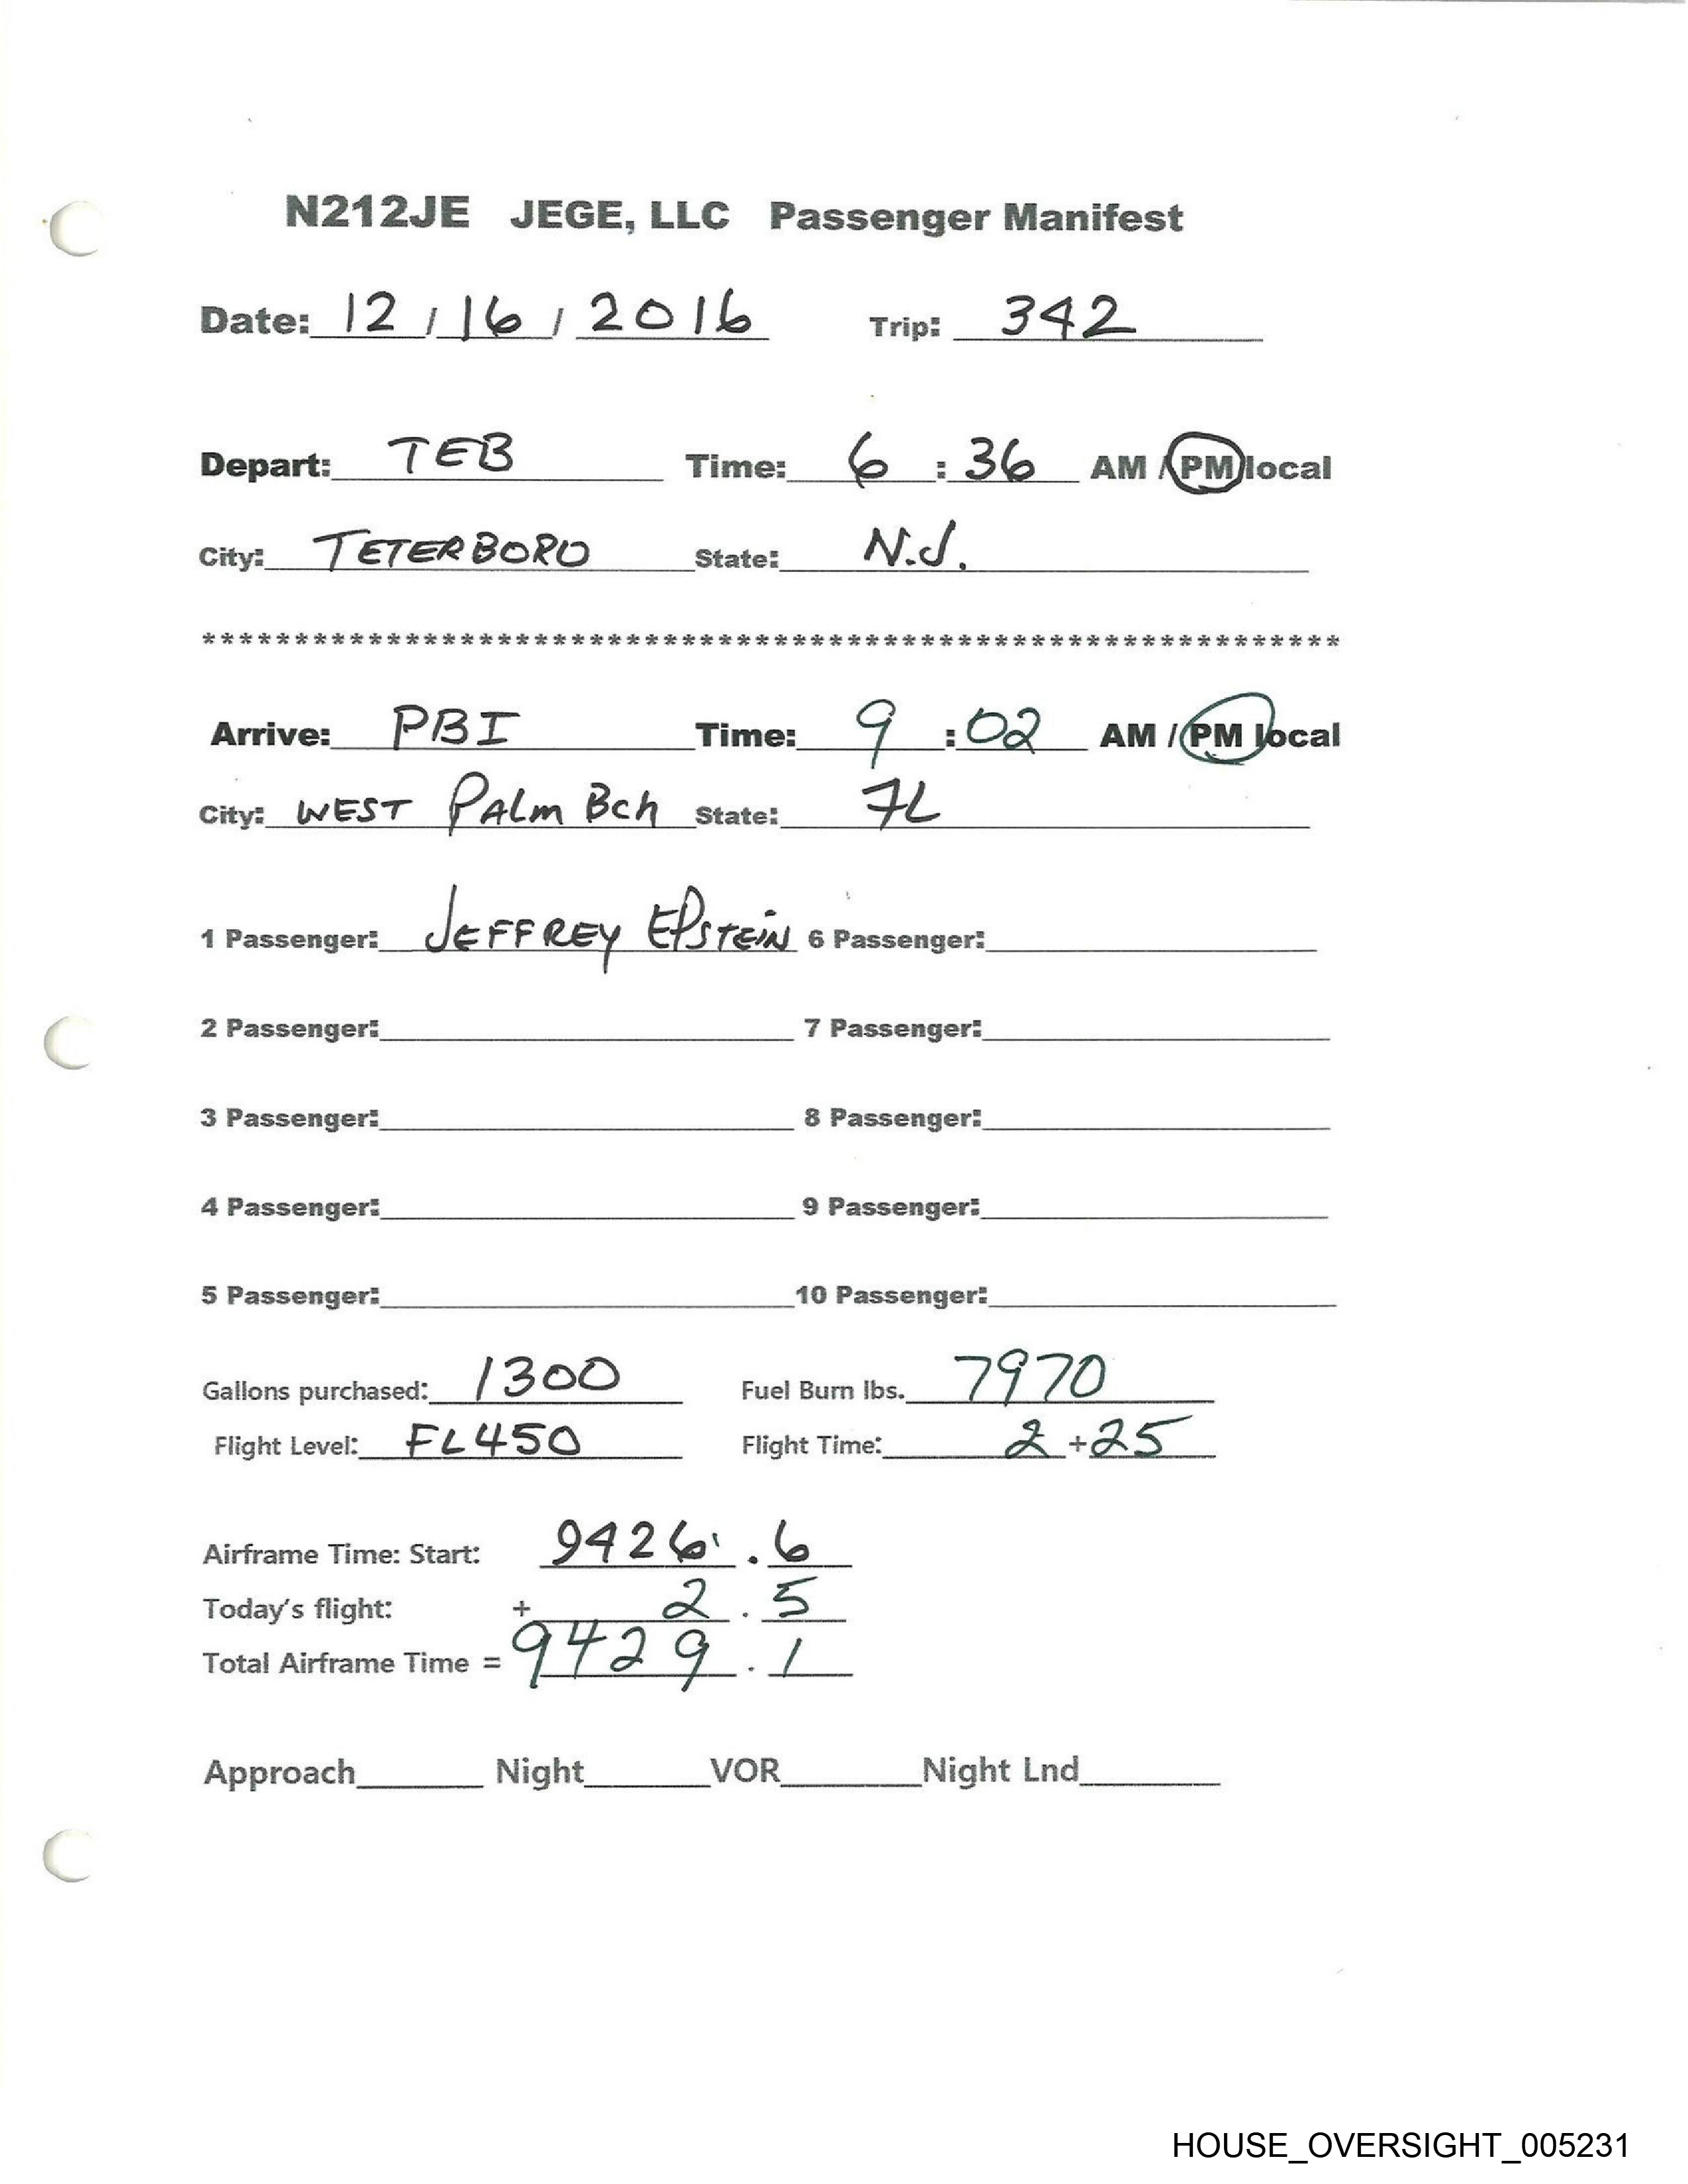 N212JE JEGE, LLC Passenger Manifest
Date: 12 / 16 / 2016 Trip: 342
Depart: TEB Time: 6 : 36 AM / PM local
City: TETERBORO State: N.J.
**************************************************************
Arrive: PBI Time: 9 : 02 AM / PM local
City: WEST PALm Bch State: FL
1 Passenger: JEFFREY EPSTEIN 6 Passenger:
2 Passenger: 7 Passenger:
3 Passenger: 8 Passenger:
4 Passenger: 9 Passenger:
5 Passenger: 10 Passenger:
Gallons purchased: 1300 Fuel Burn lbs. 7970
Flight Level: FL450 Flight Time: 2 + 25
Airframe Time: Start: 9426 . 6
Today's flight: + 2 . 5
Total Airframe Time = 9429 . 1
Approach Night VOR Night Lnd
HOUSE_OVERSIGHT_005231